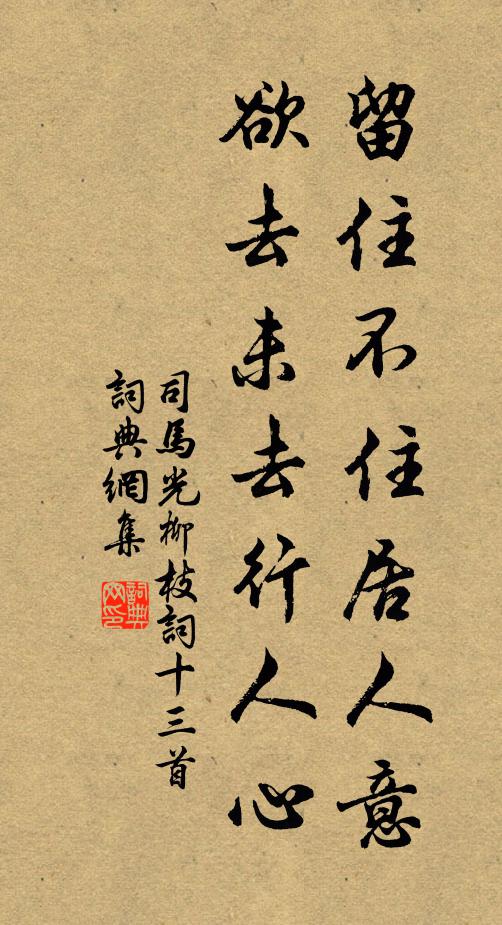 留住不住居人意
欲去未去行人心
司馬光柳枝詞十三首
詞典網集
詞典
网印